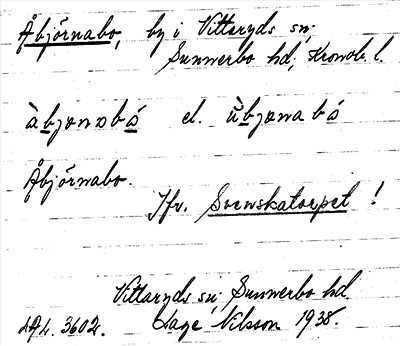 Åbjörnabo, by i Vittaryds sn;
Sunnerbo hd; Kronob. l.
àbjɶnabå el. ùbjɶnabå
Åbjörnabo.
Jfr. Svenskatorpet !
Vittaryds sn; Sunnerbo hd.
Lage Nilsson 1938.